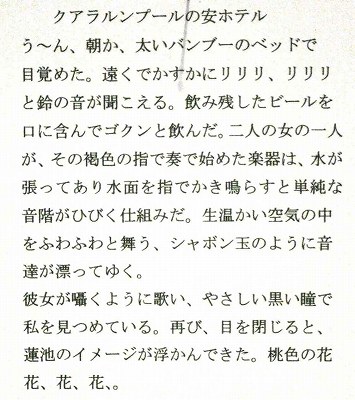 クアラルンプールの安ホテル
う～ん、朝か、太いバンブーのベッドで
目覚めた。遠くでかすかにリリリ、リリリ
と鈴の音が聞こえる。飲み残したビールを
口に含んでゴクンと飲んだ。二人の女の一人
が、その褐色の指で奏で始めた楽器は、水が
張ってあり水面を指でかき鳴らすと単純な
音階がひびく仕組みだ。生温かい空気の中
をふわふわと舞う、シャボン玉のように音
達が漂ってゆく。
彼女が囁くように歌い、やさしい黒い瞳で
私を見つめている。再び、目を閉じると、
蓮池のイメージが浮かんできた。桃色の花
花、花、花、。